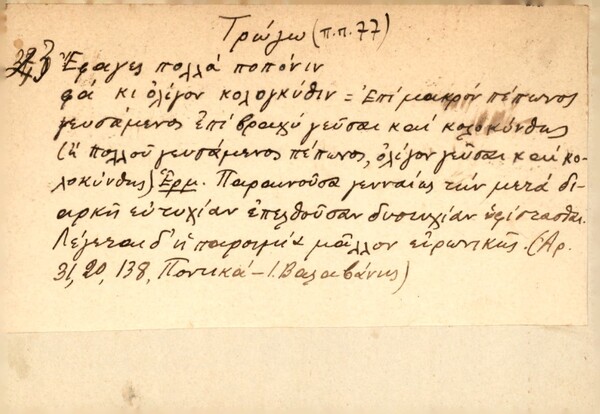 Τρώγω (π.π. 77)
Ἔφαγες πολλά ποπόνιν
φά κι ὀλίγον κολογκύθιν = Ἐπί μακρόν πέπωνος
γευσάμενος ἐπί βραχύ γεῦσαι καί κολοκύνθης
(ἤ πολλοῦ γευσάμενος πέπωνος, ὀλίγον γεῦσαι καί κο-
λοκύνθης) Ἑρμ. Παραινοῦσα γενναίως τήν μετά δι-
αρκῆ εὐτυχίαν ἐπελθοῦσαν δυστυχίαν ὑφίστασθαι.
Λέγεται δ' ἡ παροιμία μᾶλλον εἰρωνικῶς. (Ἀρ.
31, 20, 138, Ποντικά - Ι. Βαλαβάνης)